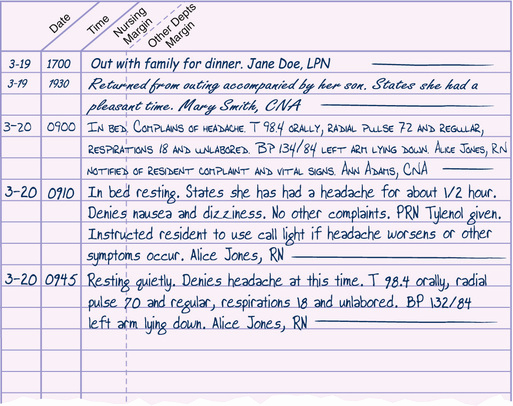 Date Time Nursing Margin Other Depts Margin
3-19 1700 Out with family for dinner. Jane Doe, LPN
3-19 1930 Returned from outing accompanied by her son. States she had a
pleasant time. Mary Smith, CNA
3-20 0900 IN BED. COMPLAINS OF HEADACHE. T 98.4 ORALLY, RADIAL PULSE 72 AND REGULAR,
RESPIRATIONS 18 AND UNLABORED. BP 134/84 LEFT ARM LYING DOWN. ALICE JONES, RN
NOTIFIED OF RESIDENT COMPLAINT AND VITAL SIGNS. ANN ADAMS, CNA
3-20 0910 In bed resting. States she has had a headache for about 1/2 hour.
Denies nausea and dizziness. No other complaints. PRN Tylenol given.
Instructed resident to use call light if headache worsens or other
symptoms occur. Alice Jones, RN
3-20 0945 Resting quietly. Denies headache at this time. T 98.4 orally, radial
pulse 70 and regular, respirations 18 and unlabored. BP 132/84
left arm lying down. Alice Jones, RN